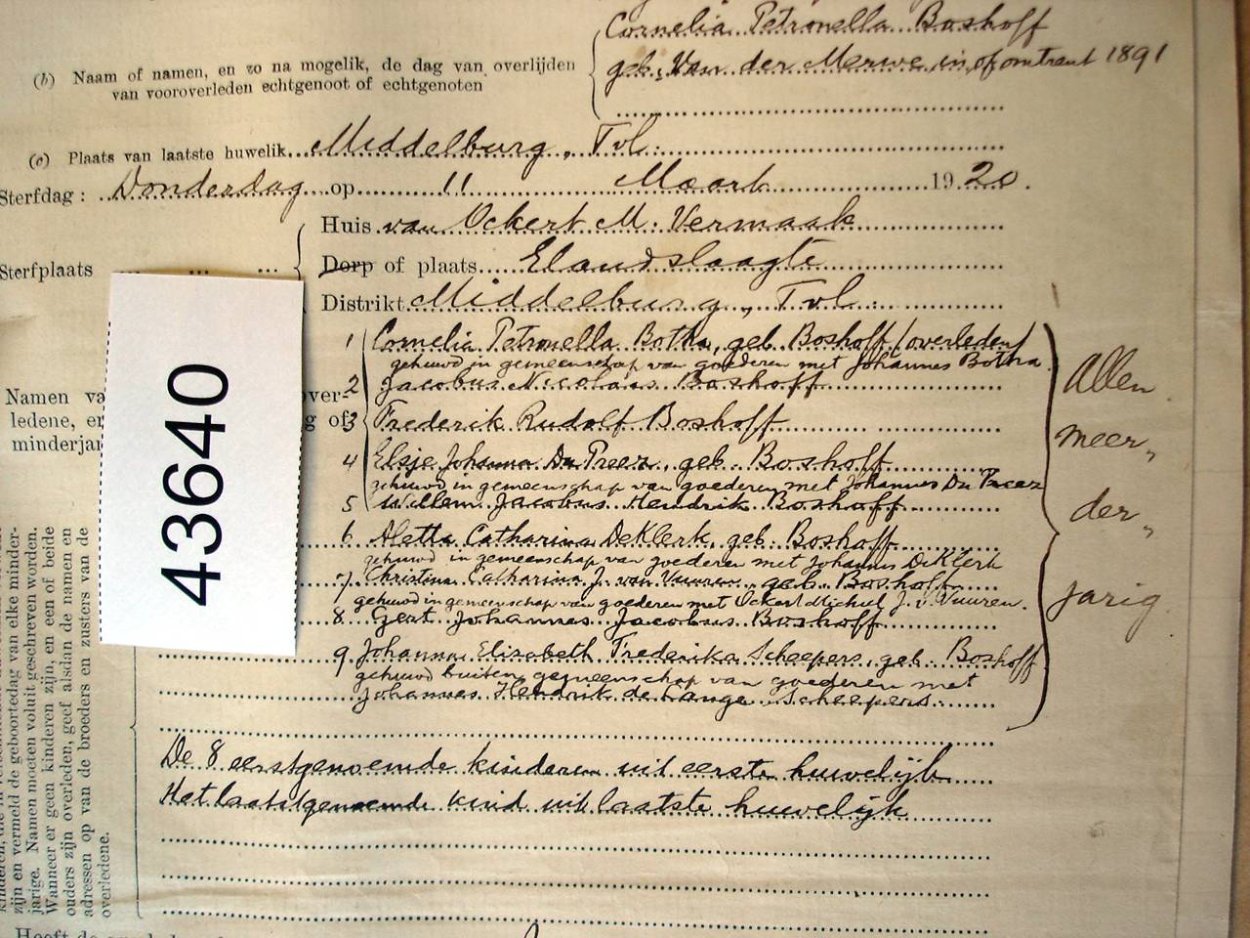 Cornelia Petronella Boshoff
(b) Naam of namen, en zo na mogelik, de dag van overlijden
van vooroverleden echtgenoot of echtgenoten
geb. Van der Merwe in of omtrent 1891
(c) Plaats van laatste huwelik Middelburg, Tvl.
Sterfdag: Donderdag op 11 Maart 1920.
Sterfplaats
Huis van Ockert M. Vermaak
Dorp of plaats Elandslaagte
Distrikt Middelburg, Tvl.
1 Cornelia Petronella Botha, geb. Boshoff (overleden)
gehuwd in gemeenschap van goederen met Johannes Botha
2 Jacobus Nicolaas Boshoff
3 Frederik Rudolf Boshoff
4 Elsje Johanna Du Preez, geb. Boshoff
gehuwd in gemeenschap van goederen met Johannes Du Preez
5 Willem Jacobus Hendrik Boshoff
6 Aletta Catharina DeKlerk, geb. Boshoff
gehuwd in gemeenschap van goederen met Johannes DeKlerk
7 Christina Catharina J. van Vuuren, geb. Boshoff
gehuwd in gemeenschap van goederen met Ockert Michiel J. v. Vuuren.
8 Gert Johannes Jacobus Boshoff
9 Johanna Elizabeth Frederika Scheepers, geb. Boshoff
gehuwd buiten gemeenschap van goederen met
Johannes Hendrik de Lange Scheepers.
Allen
meer-
der-
jarig
Namen va
ledene, er
minderjar
over-
g of
43640
De 8 eerstgenoemde kinderen uit eerste huwelijk
Het laatstgenoemde kind uit laatste huwelijk
zijn en vermeld de geboortedag van elke minder-
jarige. Namen moeten voluit geschreven worden.
Wanneer er geen kinderen zijn, en een of beide
ouders zijn overleden, geef alsdan de namen en
adressen op van de broeders en zusters van de
overledene.
Heeft de